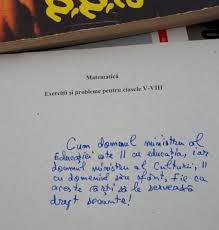 Matematică
Exerciții și probleme pentru clasele V-VIII
Cum domnul ministru al
Educației este || cu educația, iar
domnul ministru al Culturii, ||
cu domeniul său sfânt, fie ca
aceste cărți să le servească
drept